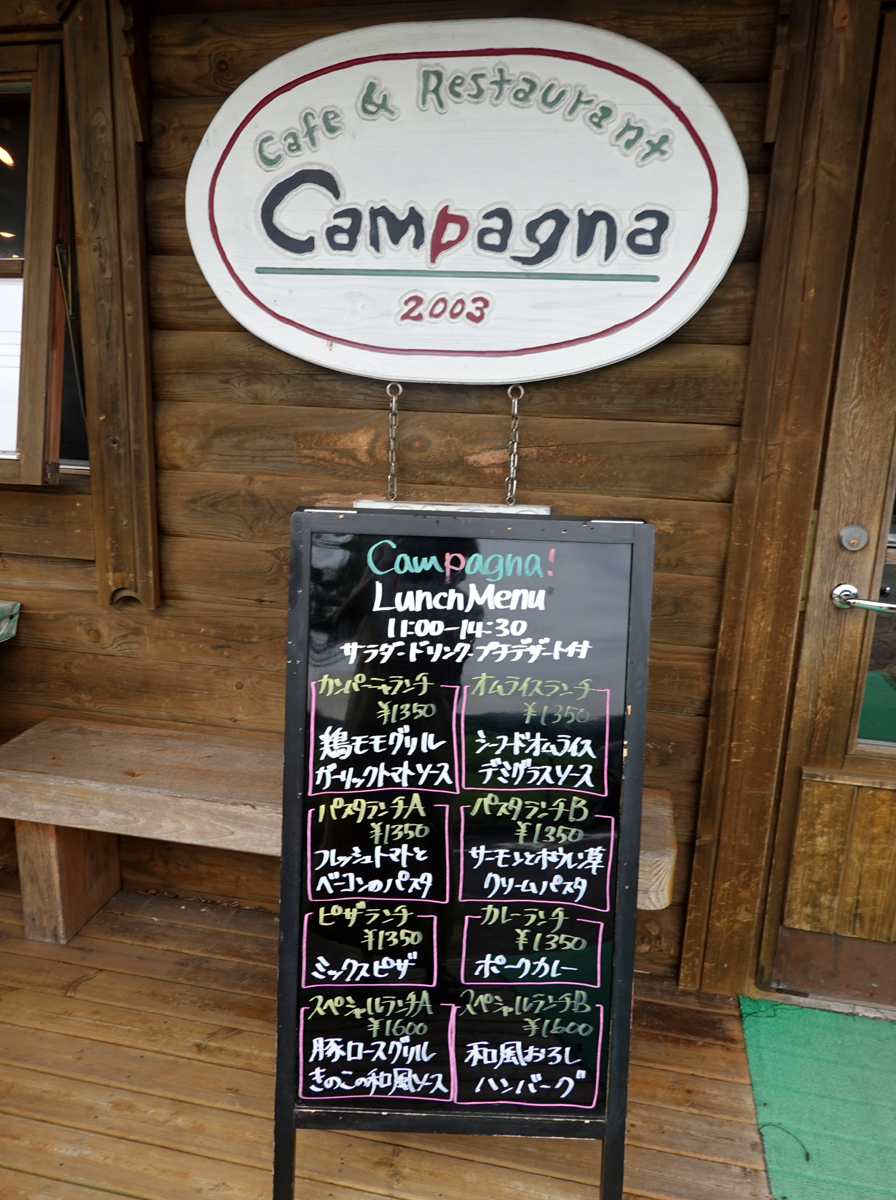 Cafe & Restaurant
Campagna
2003
Campagna!
Lunch Menu
11:00-14:30
サラダ・ドリンク・プチデザート付
カンパーニャランチ
¥1350
鶏モモグリル
ガーリックトマトソース
オムライスランチ
¥1350
シーフードオムライス
デミグラスソース
パスタランチA
¥1350
フレッシュトマトと
ベーコンのパスタ
パスタランチB
¥1350
サーモンとホウレン草
クリームパスタ
ピザランチ
¥1350
ミックスピザ
カレーランチ
¥1350
ポークカレー
スペシャルランチA
¥1600
豚ロースグリル
きのこの和風ソース
スペシャルランチB
¥1600
和風おろし
ハンバーグ